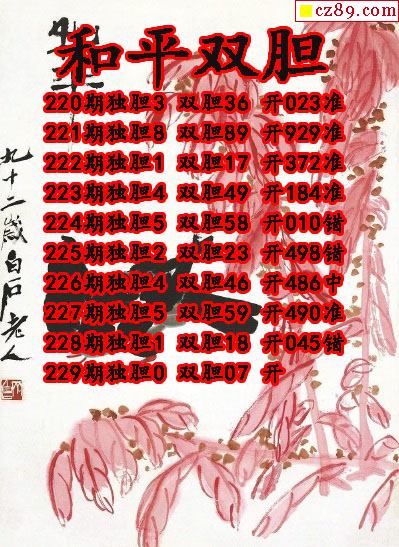 cz89.com
和平双胆
220期独胆3 双胆36 开023准
221期独胆8 双胆89 开929准
222期独胆1 双胆17 开372准
223期独胆4 双胆49 开184准
224期独胆5 双胆58 开010错
225期独胆2 双胆23 开498错
226期独胆4 双胆46 开486中
227期独胆5 双胆59 开490准
228期独胆1 双胆18 开045错
229期独胆0 双胆07 开
九十二岁白石老人